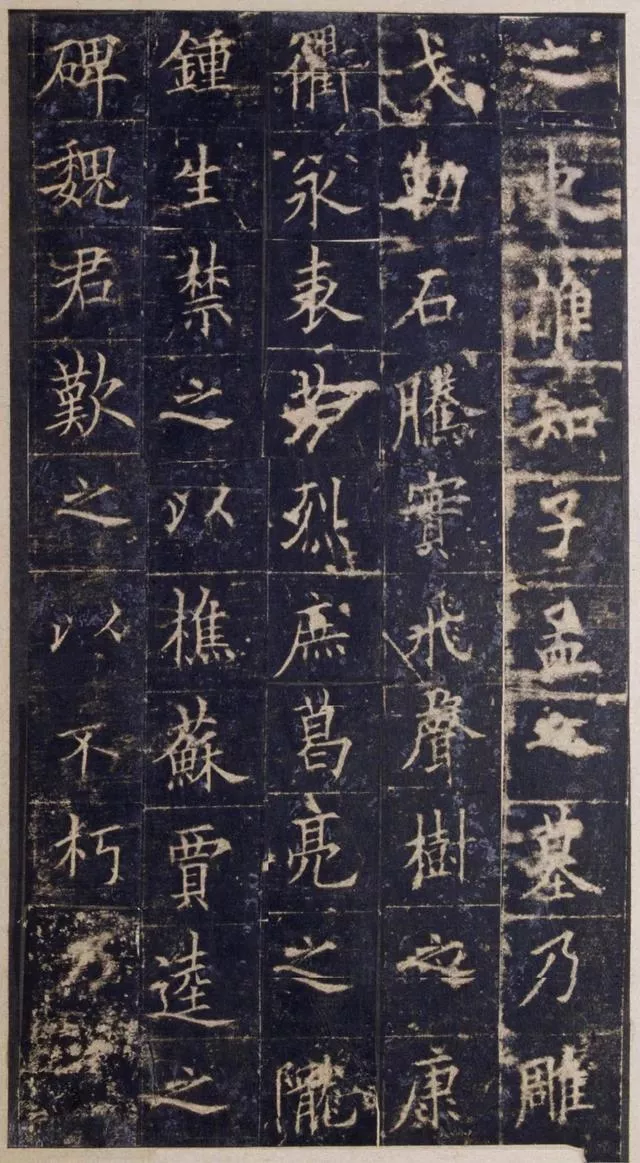 之東知子孟之墓乃雕
戈勒石騰實飛聲樹之康
衢永表芳烈庶葛亮之隴
鍾生禁之以樵蘇賈逵之
碑魏君歎之以不朽乃